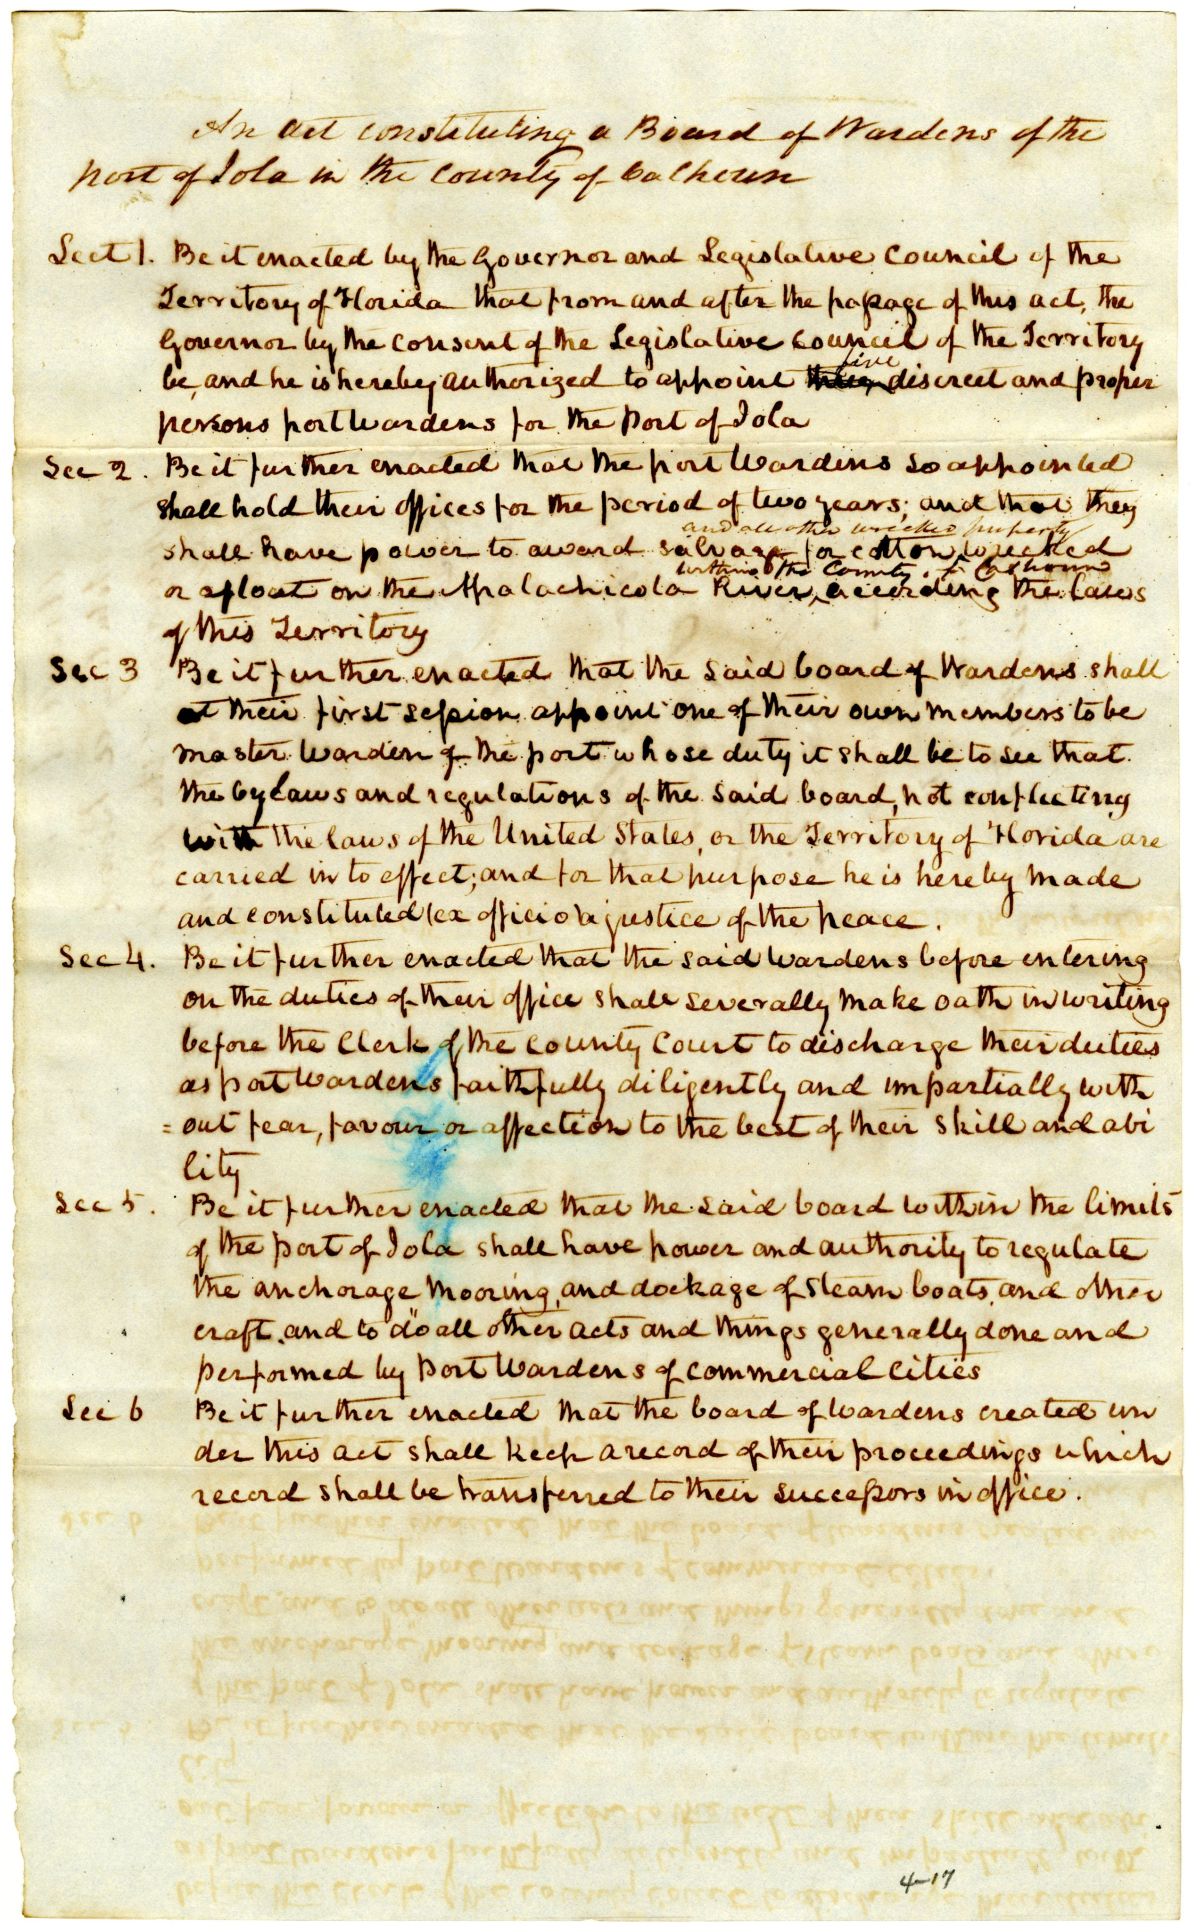 An act constituting a Board of Wardens of the
port of Iola in the County of Calhoun
Sect 1. Be it enacted by the Governor and Legislative Council of the
Territory of Florida that from and after the passage of this act, the
Governor by the consent of the Legislative Council of the Territory
five
be, and he is hereby authorized to appoint three discreet and proper
persons port Wardens for the Port of Iola
Sec 2. Be it further enacted that the port Wardens so appointed
shall hold their offices for the period of two years; and that they
and all other wrecked property
shall have power to award salvage for cotton wrecked
within the County of Calhoun
or afloat on the Apalachicola River, according the laws
of this Territory
Sec 3 Be it further enacted that the said board of Wardens shall
at their first session appoint one of their own members to be
master Warden of the port whose duty it shall be to see that
the by Laws and regulations of the said board, not conflicting
with the laws of the United States, or the Territory of Florida are
carried in to effect; and for that purpose he is hereby made
and constituted (ex officio) a justice of the peace.
Sec 4. Be it further enacted that the said Wardens before entering
on the duties of their office shall severally make oath in writing
before the Clerk of the County Court to discharge their duties
as port Wardens faithfully diligently and impartially with
= out fear, favour or affection to the best of their skill and abi
lity
Sec 5. Be it further enacted that the said board within the limits
of the port of Iola shall have power and authority to regulate
the anchorage mooring, and dockage of steam boats, and other
craft, and to do all other acts and things generally done and
performed by port Wardens of commercial cities
Sec 6 Be it further enacted that the board of Wardens created un
der this act shall keep a record of their proceedings which
record shall be transferred to their successors in office.
4-17